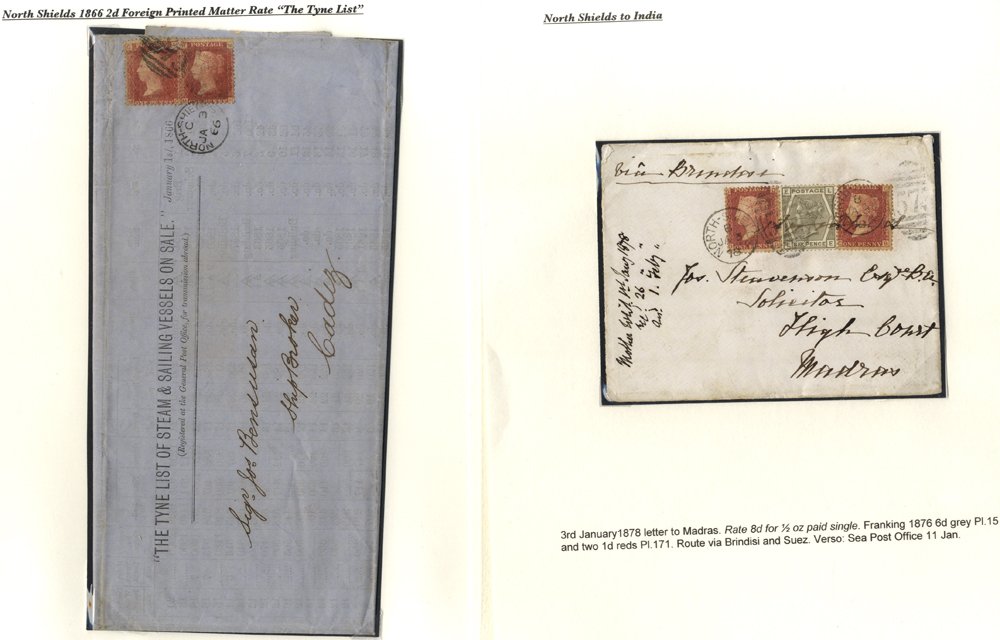 North Shields 1866 2d Foreign Printed Matter Rate "The Tyne List"
POSTAGE
NORTH-SHIE
C
JA 3
66
"THE TYNE LIST OF STEAM & SAILING VESSELS ON SALE." January 1st, 1866
(Registered at the General Post Office, for transmission abroad.)
Sigr. Jos Bensusan.
Ship Broker
Cadiz.
North Shields to India
via Brindisi
NORTH-S
JA
78
POSTAGE
SIX PENCE
ONE PENNY
Jos. Stevenson Esqre B.A.
Solicitor
High Court
Madras
3rd January1878 letter to Madras. Rate 8d for ½ oz paid single. Franking 1876 6d grey Pl.15
and two 1d reds Pl.171. Route via Brindisi and Suez. Verso: Sea Post Office 11 Jan.